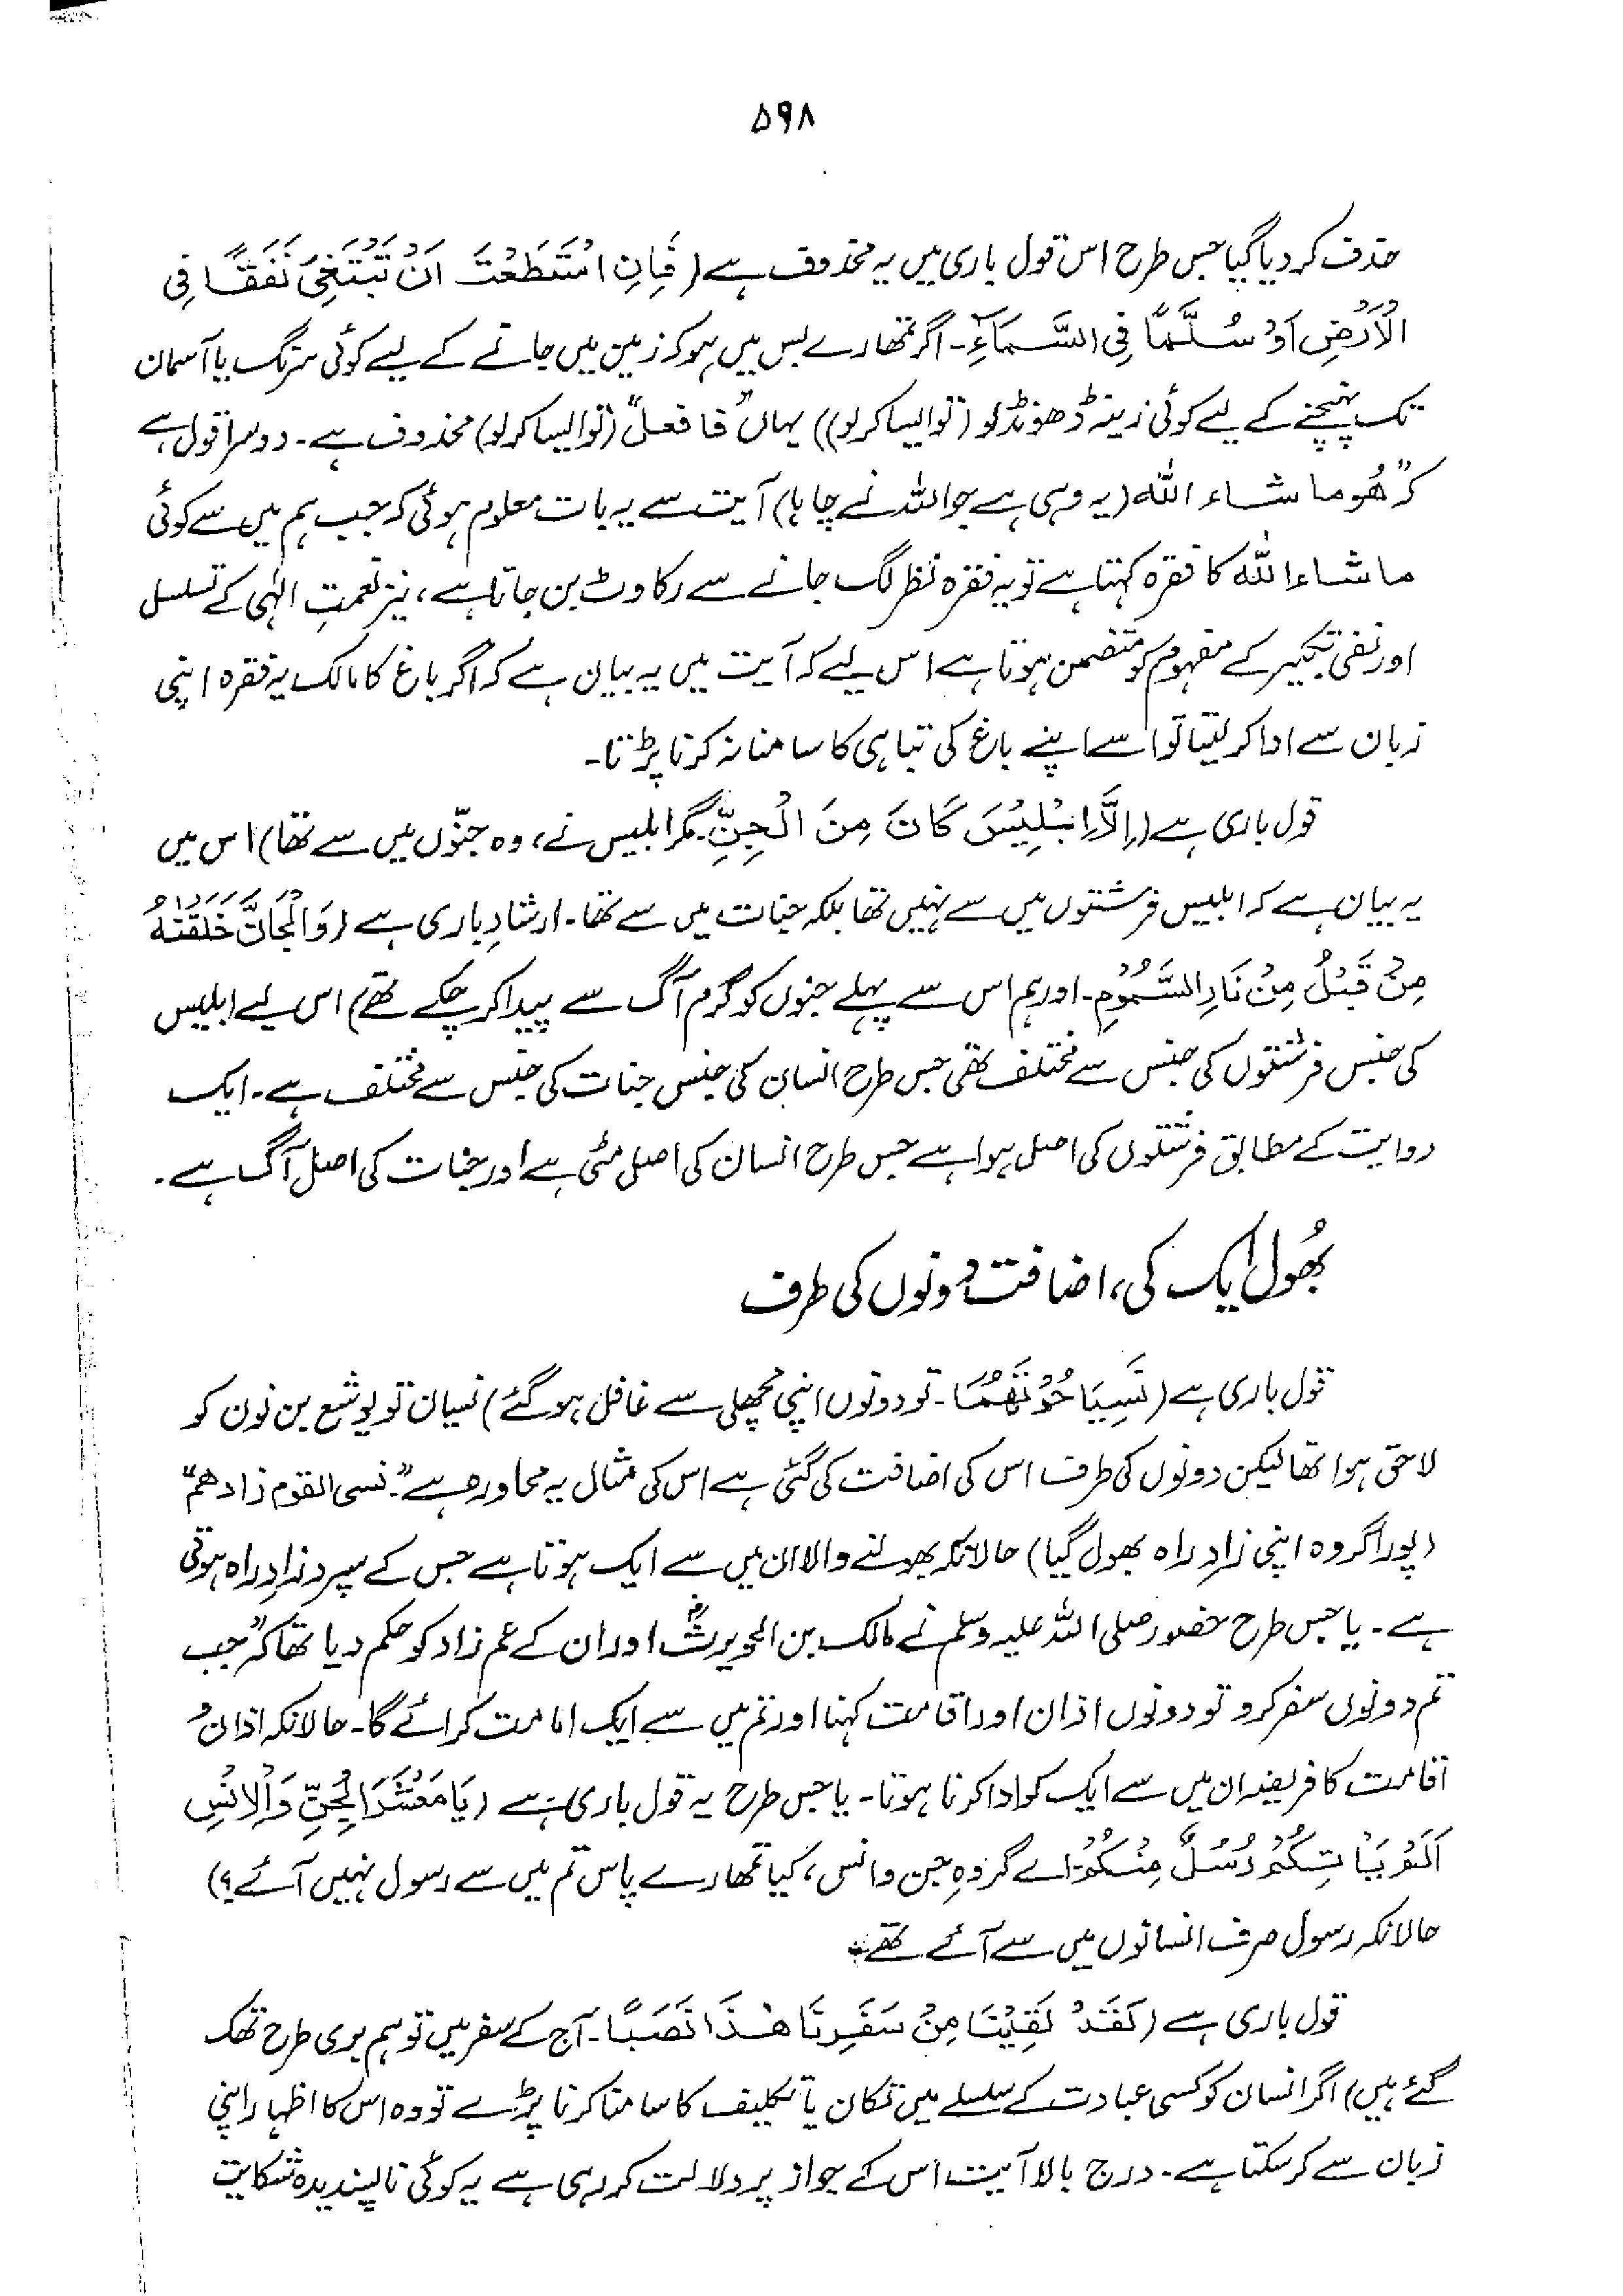 ۵۹۸
حذف کر دیا گیا جس طرح اس قول باری میں یہ محذوف ہے (فَاِنِ اسْتَطَعْتَ اَنْ تَبْتَغِیَ نَفَقًا فِی
الْاَرْضِ اَوْ سُلَّمًا فِی السَّمَآءِ۔ اگر تمھارے بس میں ہو کہ زمین میں جانے کے لیے کوئی سرنگ یا آسمان
تک پہنچنے کے لیے کوئی زینہ ڈھونڈلو (توایسا کرلو)) یہاں "فافعل" (توایسا کرلو) محذوف ہے۔ دوسرا قول ہے
کہ "ھُو ما شاء اللہ (یہ وہی ہے جو اللہ نے چاہا) آیت سے یہ بات معلوم ہوئی کہ جب ہم میں سے کوئی
ماشاء اللہ کا فقرہ کہتا ہے تو یہ فقرہ نظر لگ جانے سے رکاوٹ بن جاتا ہے، نیز نعمتِ الٰہی کے تسلسل
اور نفی تکبیر کے مفہوم کو متضمن ہوتا ہے اس لیے کہ آیت میں یہ بیان ہے کہ اگر باغ کا مالک یہ فقرہ اپنی
زبان سے ادا کر لیتا تو اسے اپنے باغ کی تباہی کا سامنا نہ کرنا پڑتا۔
قول باری ہے (اِلَّا اِبْلِیْسَ کَانَ مِنَ الْجِنِّ۔ مگر ابلیس نے، وہ جنّوں میں سے تھا) اس میں
یہ بیان ہے کہ ابلیس فرشتوں میں سے نہیں تھا بلکہ جنات میں سے تھا۔ ارشادِ باری ہے (وَالْجَانَّ خَلَقْنٰهُ
مِنْ قَبْلُ مِنْ نَارِ السَّمُوْمِ۔ اور ہم اس سے پہلے جنوں کو گرم آگ سے پیدا کر چکے تھے) اس لیے ابلیس
کی جنس فرشتوں کی جنس سے مختلف تھی جس طرح انسان کی جنس جنات کی جنس سے مختلف ہے۔ ایک
روایت کے مطابق فرشتوں کی اصل ہوا ہے جس طرح انسان کی اصل مٹی ہے اور جنات کی اصل آگ ہے۔
بھُول ایک کی، اضافت دونوں کی طرف
قول باری ہے (نَسِیَا حُوْتَھُمَا۔ تو دونوں اپنی مچھلی سے غافل ہو گئے) نسیان تو یوشع بن نون کو
لاحق ہوا تھا لیکن دونوں کی طرف اس کی اضافت کی گئی ہے اس کی مثال یہ محاورہ ہے "نسی القوم زادھم"
(پورا گروہ اپنی زادِ راہ بھول گیا) حالانکہ بھولنے والا ان میں سے ایک ہوتا ہے جس کے سپرد زادِ راہ ہوتی
ہے۔ یا جس طرح حضور صلی اللہ علیہ وسلم نے مالک بن الحویرثؓ اور ان کے عم زاد کو حکم دیا تھا کہ "جب
تم دونوں سفر کرو تو دونوں اذان اور اقامت کہنا اور تم میں سے ایک امامت کرائے گا۔ حالانکہ اذان و
اقامت کا فریضہ ان میں سے ایک کو ادا کرنا ہوتا۔ یا جس طرح یہ قول باری ہے (یَا مَعْشَرَ الْجِنِّ وَالْاِنْسِ
اَلَمْ یَاْتِکُمْ رُسُلٌ مِنْکُمْ اے گروہِ جن و انس، کیا تمھارے پاس تم میں سے رسول نہیں آئے؟)
حالانکہ رسول صرف انسانوں میں سے آئے تھے۔
قول باری ہے (لَقَدْ لَقِیْنَا مِنْ سَفَرِنَا ھٰذَا نَصَبًا۔ آج کے سفر میں تو ہم بری طرح تھک
گئے ہیں) اگر انسان کو کسی عبادت کے سلسلے میں تکان یا تکلیف کا سامنا کرنا پڑے تو وہ اس کا اظہار اپنی
زبان سے کر سکتا ہے۔ درج بالا آیت اس کے جواز پر دلالت کر رہی ہے یہ کوئی ناپسندیدہ شکایت